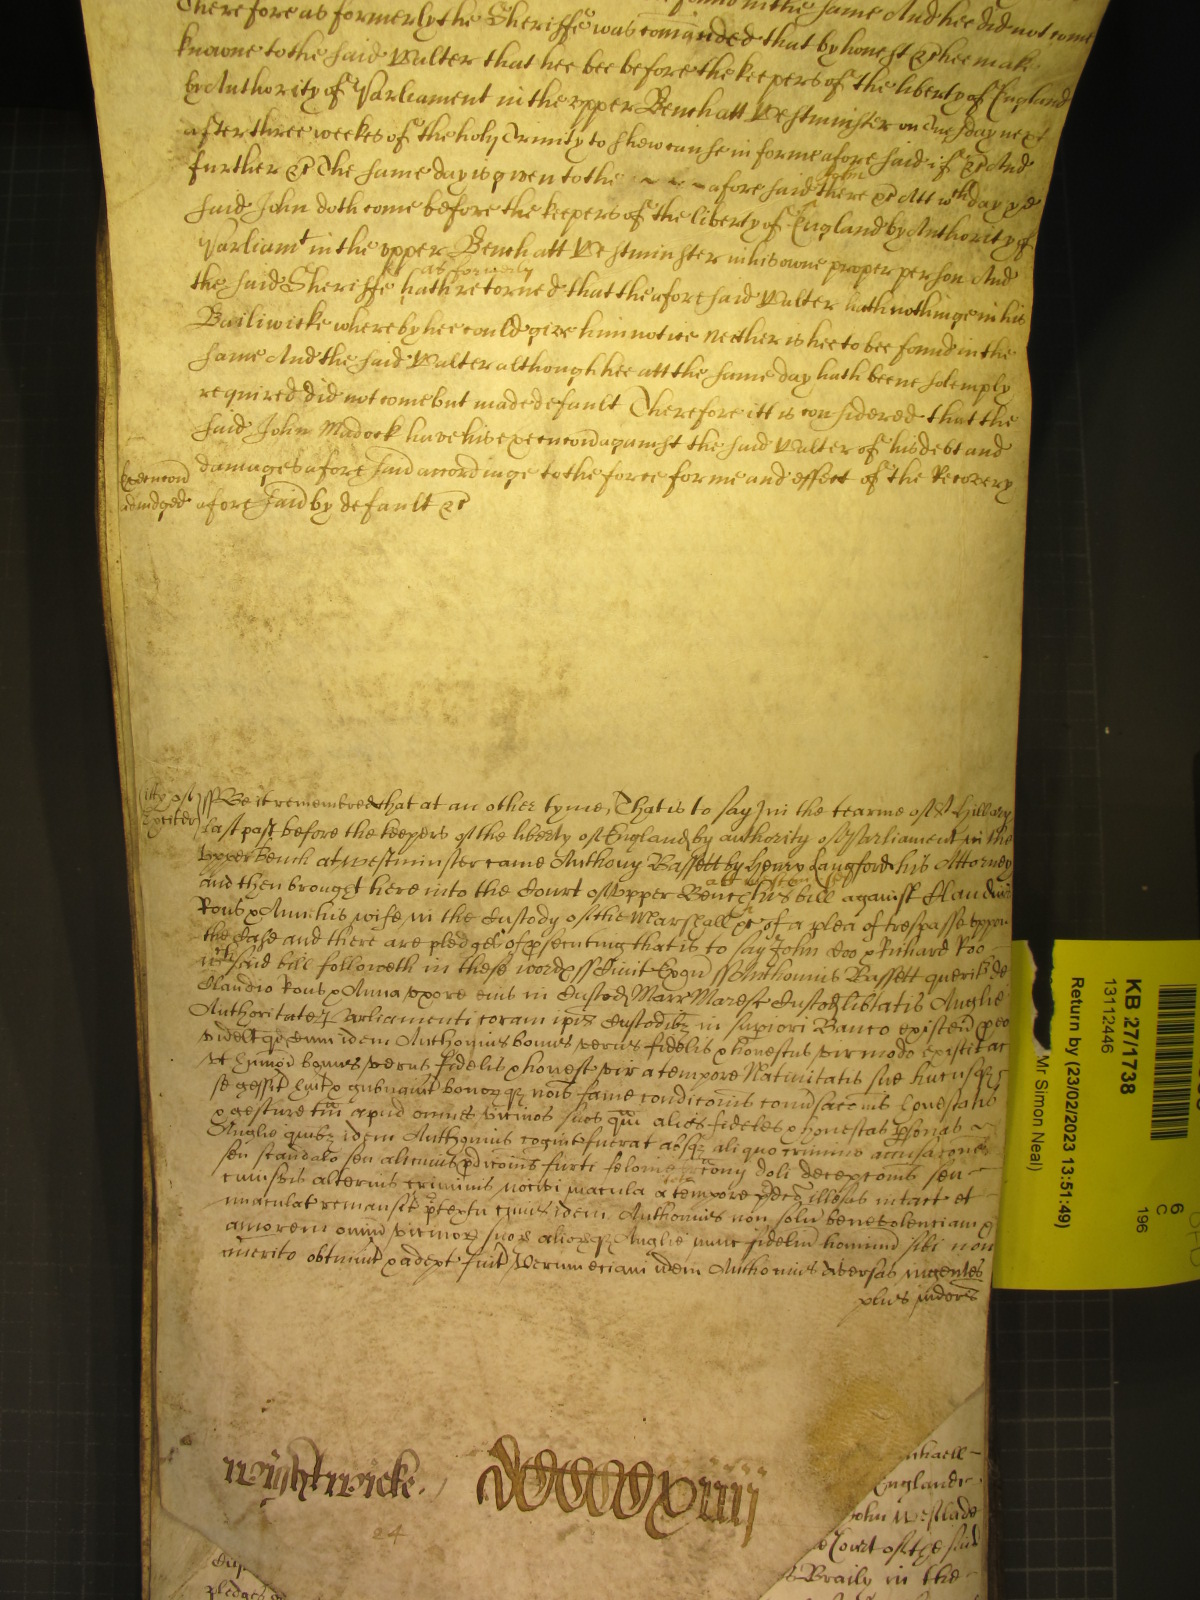 Therefore as formerly the Sheriffe was comanded that by honest &c hee make
knowne to the said Walter that hee bee before the keepers of the liberty of England
by Authority of Parliament in the upper Bench att Westminster on Tuesday next
after three weekes of the holy Trinity to shew cause in forme aforesaid if &c And
further &c The same day is given to the aforesaid John there &c Att wch day
said John doth come before the keepers of the liberty of England by Authority of
Parliamt in the upper Bench att Westminster in his owne proper person And
the said Sheriffe as formerly hath retorned that the aforesaid Walter hath nothinge in his
Bailiwicke whereby hee could give him notice neither is hee to bee found in the
same And the said Walter although hee att the same day hath beene solemply
required did not come but made default Therefore itt is considered that the
said John Madock have his execucon against the said Walter of his debt and
damages aforesaid accordinge to the force forme and effect of the Recovery
Execucon
adiudged
aforesaid by default &c
Citty of
Exceter
ss Be it remembred that at an other tyme, That is to say in the tearme of St Hillary
last past before the keepers of the liberty of England by authority of Parliament in the
upper Bench at westminster came Anthony Bassett by Henry Langford his Attorney
and then brought here into the Court of upper Bench att westm his bill against Claudius
Rous & Ann his wife, in the Custody of the Marshall &c of a plea of trespasse uppon
the Case and there are pledges of psecuting that is to say John doo & Richard Roo
said bill followeth in these words ss Civit Exon ss Anthonius Bassett querit de
Claudio Rous & Anna uxore eius in Custod Marr Maresc Custod libtatis Anglie
Authoritate Parliamenti coram ipis Custodibz in supiori Banco existen p eo
videlt qd cum idem Anthonius bonus verus fidelis & honestus vir modo existit ac
ut hmoi bonus verus fidelis & honest vir a tempore Nativitatis sue hucusqz
se gessit huit & gubnavit bonorqz nois fame condiconis convsaconis honestatis
& gesture tm apud omnes vicinos suos qm alios fideles & honestas psonas
Anglie quibz idem Anthonius cognit fuerat absqz aliquo crimine accusacones
seu scandalo seu alicuius pdiconis furti felonie doli decepconis seu
cuiusvis alterius criminis nocivi macula a tempore pdco illesus intact et
imaculat remansit ptextu cuius idem Anthonius non solu benevolenciam &
amorem omniu vicinor suor aliorqz Anglie nunc fideliu hominu sibi non
imerito obtinuit & adept fuit Verum eciam idem Anthonius diversas ingentes
plus indors
wightwicke.
24
DCCCCCxiiij
ichaell
England
John Westlade
e Court of the said
Braily in the
pledges
KB 27/1738
13112446
Return by (23/02/2023 13:51:49)
Mr Simon Neal)
6
C
196